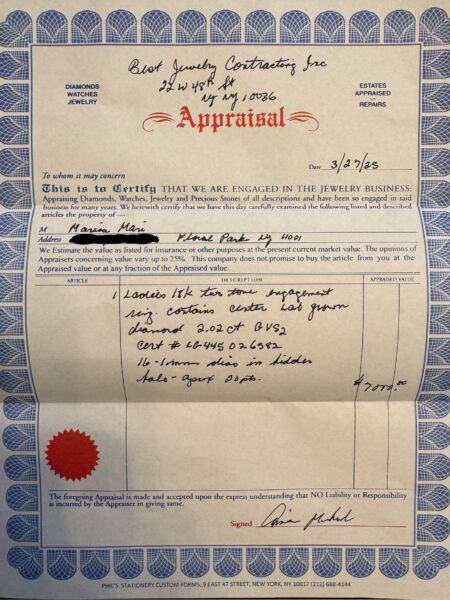 Best Jewelry Contracting Inc
22 W 48th St
NY NY 10036
DIAMONDS
WATCHES
JEWELRY
ESTATES
APPRAISED
REPAIRS
Appraisal
Date 3/27/25
To whom it may concern
This is to Certify THAT WE ARE ENGAGED IN THE JEWELRY BUSINESS:
Appraising Diamonds, Watches, Jewelry and Precious Stones of all descriptions and have been so engaged in said
business for many years. We herewith certify that we have this day carefully examined the following listed and described
articles the property of —
M Marisa Mari
Address Floral Park NY 11001
We Estimate the value as listed for insurance or other purposes at the present current market value. The opinions of
Appraisers concerning value vary up to 25%. This company does not promise to buy the article from you at the
Appraised value or at any fraction of the Appraised value.
ARTICLE DESCRIPTION APPRAISED VALUE
1 Ladies 18k two tone engagement
ring. contains center Lab grown
diamond 2.02 ct G VS2
Cert # LG 445 026582
16 - 1mm dias in hidden
halo - aprox 20 pts.
$7000.00
The foregoing Appraisal is made and accepted upon the express understanding that NO Liability or Responsibility
is incurred by the Appraiser in giving same.
Signed
PHIL'S STATIONERY CUSTOM FORMS, 9 EAST 47 STREET, NEW YORK, NY 10017 (212)-688-4144